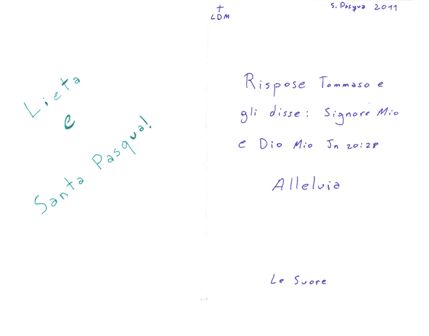 Lieta
e
Santa Pasqua!
†
LDM
S. Pasqua 2011
Rispose Tommaso e
gli disse: Signore Mio
e Dio Mio Jn 20:28
Alleluia
Le Suore